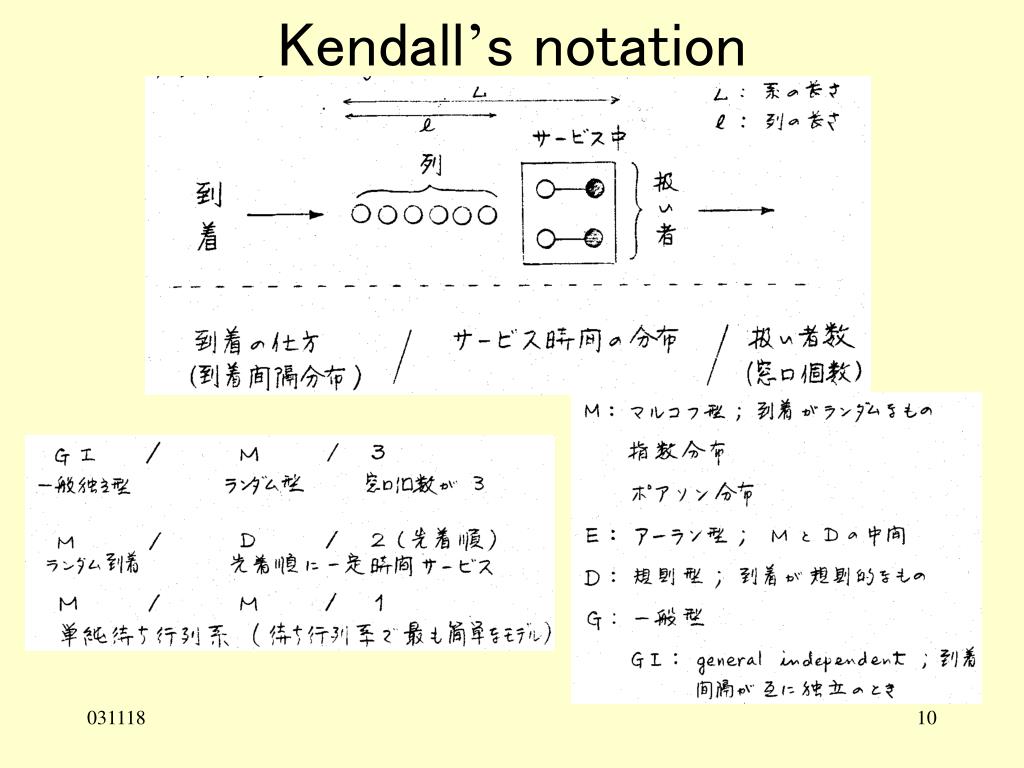 Kendall's notation
L
L : 系の長さ
ℓ
ℓ : 列の長さ
サービス中
列
到着
扱い者
到着の仕方 / サービス時間の分布 / 扱い者数
(到着間隔分布) (窓口個数)
GI / M / 3
一般独立型 ランダム型 窓口個数が 3
M / D / 2 (先着順)
ランダム到着 先着順に一定時間サービス
M / M / 1
単純待ち行列系 (待ち行列系で最も簡単なモデル)
M : マルコフ型 ; 到着がランダムなもの
指数分布
ポアソン分布
E : アーラン型 ; MとDの中間
D : 規則型 ; 到着が規則的なもの
G : 一般型
GI : general independent ; 到着
間隔が互に独立のとき
031118
10